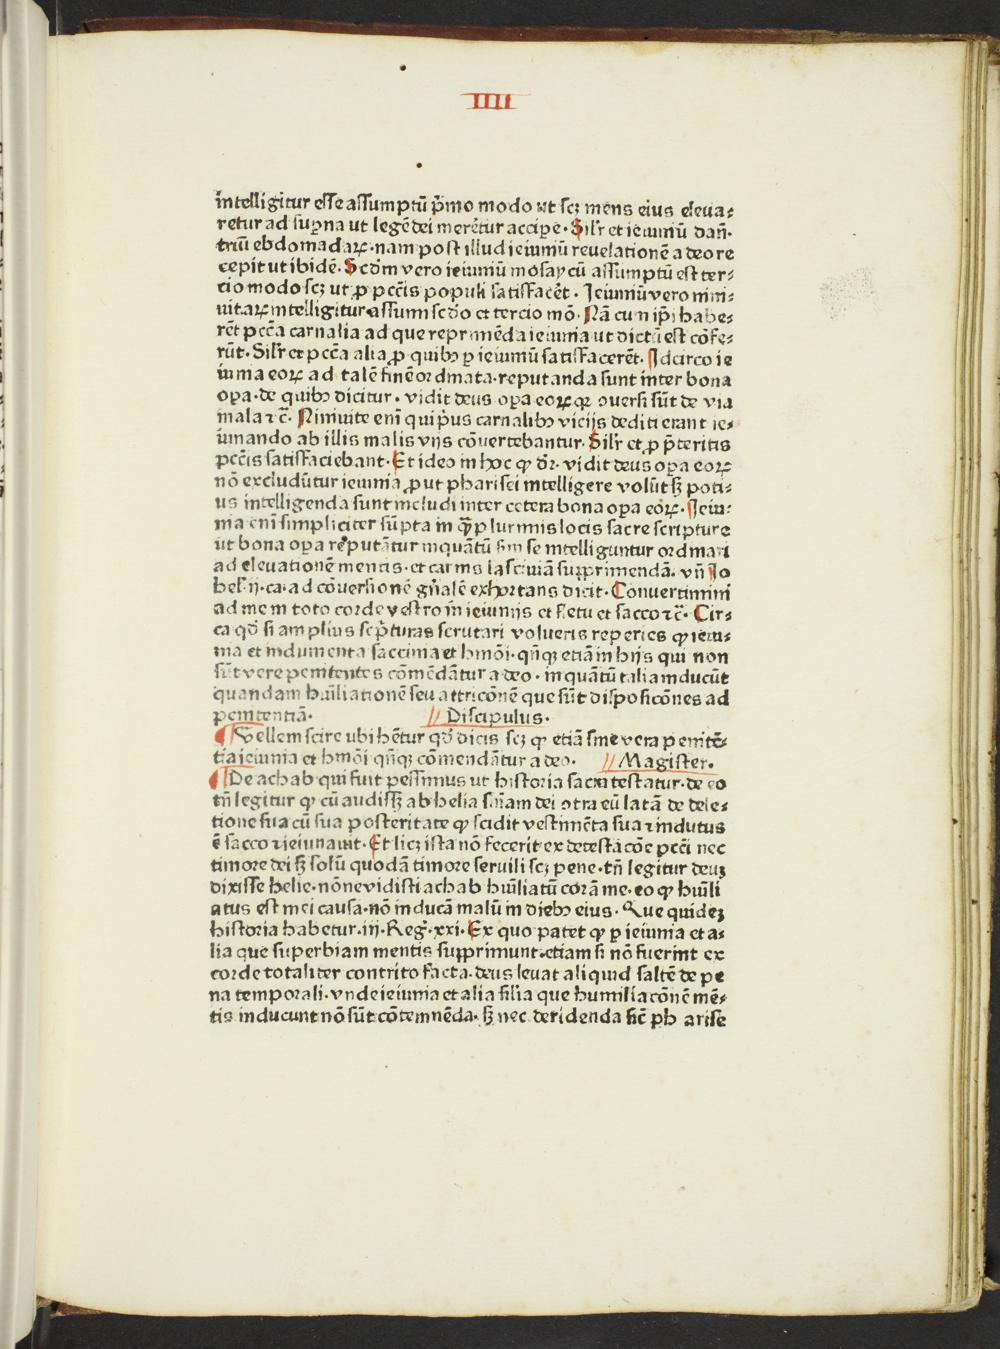 IIII
intelligitur esse assumptū p̄mo modo ut scꝫ mens eius eleua⸗
retur ad suꝑna ut legē dei merēretur acciꝑe · Silꝛ et ieiuniū dan̄ ·
triū ebdomadaꝝ · nam post illud ieiuniū reuelationē a deo re
cepit ut ibidē · Scd̄m vero ieiuniū mosay cū assumptū est ter⸗
cio modo scꝫ ut ꝓ pccīs populi satisfacēt · Jeiuniū vero nini⸗
uitaꝝ intelligitur assumi scd̄o et tercio mō · Nā cum ip̄i habe⸗
rēt pccā carnalia ad que reprimēda ieiunia ut dictū est cōfe⸗
rūt · Silꝛ et pccā alia ꝓ quibꝰ ꝑ ieiuniū satisfacerēt · Jdcirco ie
iunia eoꝝ ad talē finē ordinata · reputanda sunt inter bona
oꝑa · de quibꝰ dicitur · vidit deus oꝑa eoꝝ qꝛ ꝯuersi sūt de via
mala ⁊c̄ · Niniuite enī qui pͥus carnalibꝰ vicijs dediti erant ie⸗
iunando ab illis malis vijs cōuertebantur · Silꝛ et ꝓ p̄teritis
pccīs satisfaciebant · Et ideo in hoc ꝙ dꝛ̄ · vidit deus oꝑa eoꝝ
nō excludūtur ieiunia ꝓut pharisei intelligere volūt sꝫ poti⸗
us intelligenda sunt includi inter cetera bona oꝑa eōꝝ · Jeiu⸗
nia enī simpliciter sūpta in qͣꝫplurimis locis sacre scripture
ut bona oꝑa reputātur inquātū sm̄ se intelliguntur ordinari
ad eleuationē mentis · et carnis lasciuiā supprimendā · vn̄ Jo
hel · ij · ca · ad cōuersionē gn̄alē exhortans dicit · Conuertimini
ad me in toto corde vestro in ieiunijs et fletu et sacco ⁊c̄ · Cir⸗
ca qd̄ si amplius scp̄turas scrutari volueris reperies ꝙ ieiu⸗
nia et indumenta saccina et hmōi · qn̄qꝫ etiā in hijs qui non
sūt vere penitentes cōmēdātur a deo · inquātū talia inducūt
quandam hūiliationē seu attricōnē que sūt disposicōnes ad
penitentiā · Discipulus ·
Vellem scire ubi hētur qd̄ dicis scꝫ ꝙ etiā sine vera penitē⸗
tia ieiunia et hmōi qn̄qꝫ cōmendātur a deo · Magister ·
De achab qui fuit pessimus ut historia sacra testatur · de eo
tn̄ legitur ꝙ cū audissꝫ ab helia sn̄iam dei ꝯtra eū latā de dele⸗
tione sua cū sua posteritate ꝙ scidit vestimēta sua ⁊ indutus
ē sacco ⁊ ieiunauit · Et licꝫ ista nō fecerit ex detestacōe pcci nec
timore dei sꝫ solū quodā timore seruili scꝫ pene · tn̄ legitur deus
dixisse helie · nōne vidisti achab hūiliatū corā me · eo ꝙ hūili
atus est mei causa · nō inducā malū in diebꝰ eius · Que quidez
historia habetur · iij · Reg̃ · xxi · Ex quo patet ꝙ ꝑ ieiunia et a⸗
lia que superbiam mentis supprimunt · etiam si nō fuerint ex
corde totaliter contrito facta · deus leuat aliquid saltē de pe
na temporali · vnde ieiunia et alia sīlia que humiliacōnē mē⸗
tis inducunt nō sūt cōtemnēda · sꝫ nec deridenda sic̄ pharise